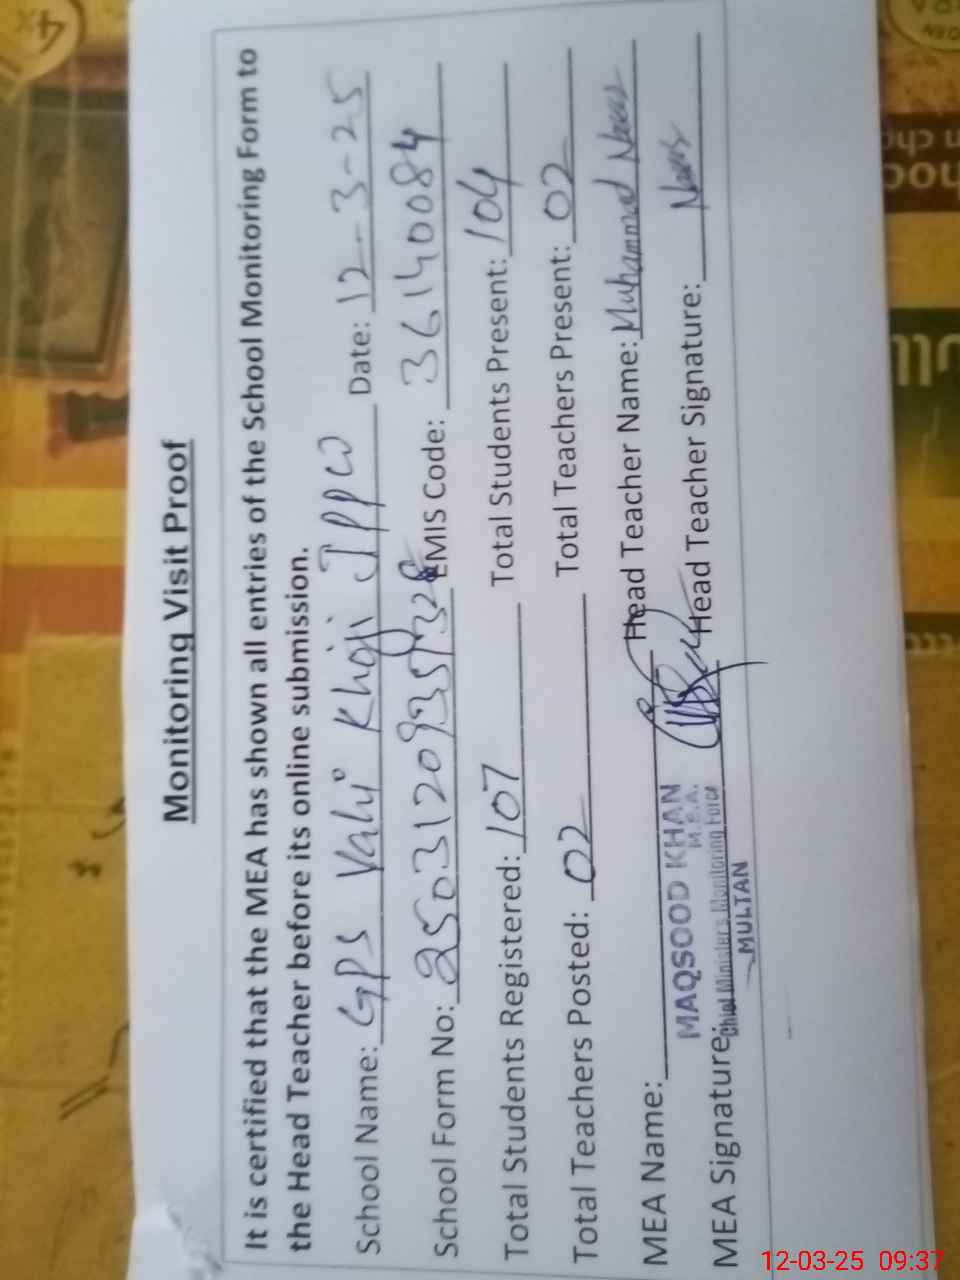 Monitoring Visit Proof
It is certified that the MEA has shown all entries of the School Monitoring Form to
the Head Teacher before its online submission.
School Name: GPS Vahi Khoji JPPW Date: 12-3-25
School Form No: EMIS Code: 36140084
Total Students Registered: 107 Total Students Present: 104
Total Teachers Posted: 02 Total Teachers Present: 02
MEA Name: Head Teacher Name: Muhammad
MAQSOOD KHAN
M.E.A.
MEA Signature: Head Teacher Signature:
Chief Minister's Monitoring Force
MULTAN
12-03-25 09:37
4x